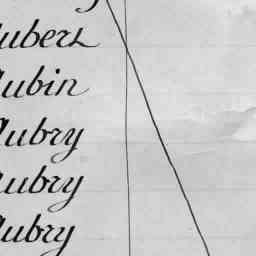 Aubert
Aubin
Aubry
Aubry
Aubry